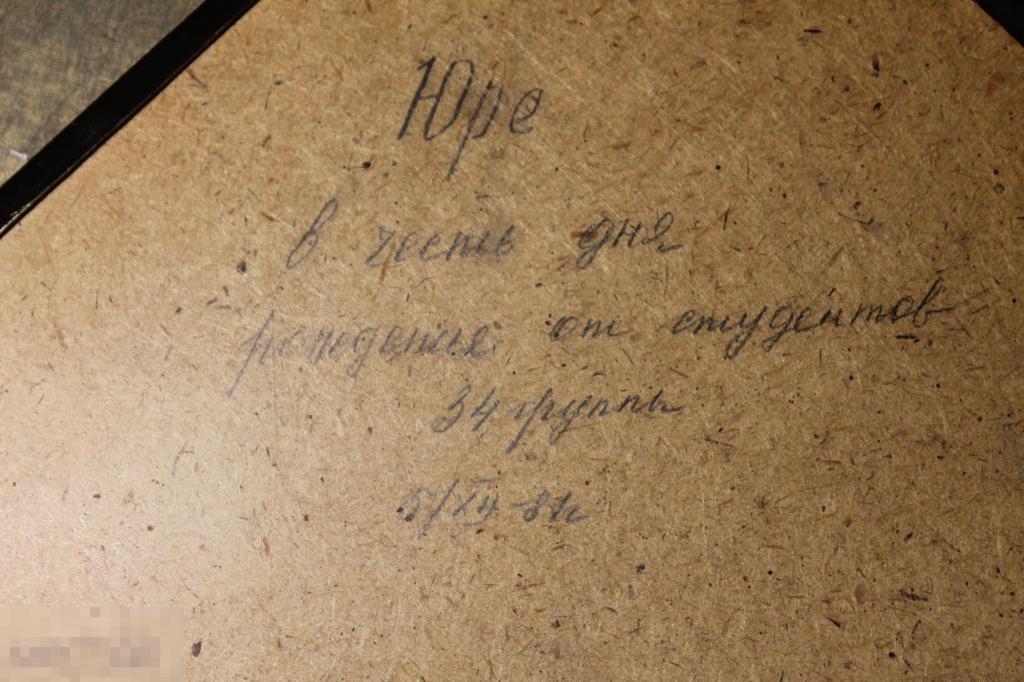 Юре
в честь дня
рождения от студентов
34 группы
5/XII-81г